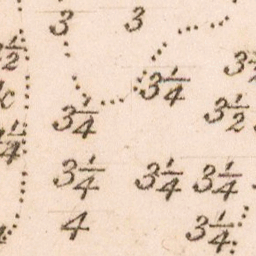 3 3
3 1/4
3 1/4 3 1/2
3 1/4 3 1/4 3 1/4
4 3 1/4